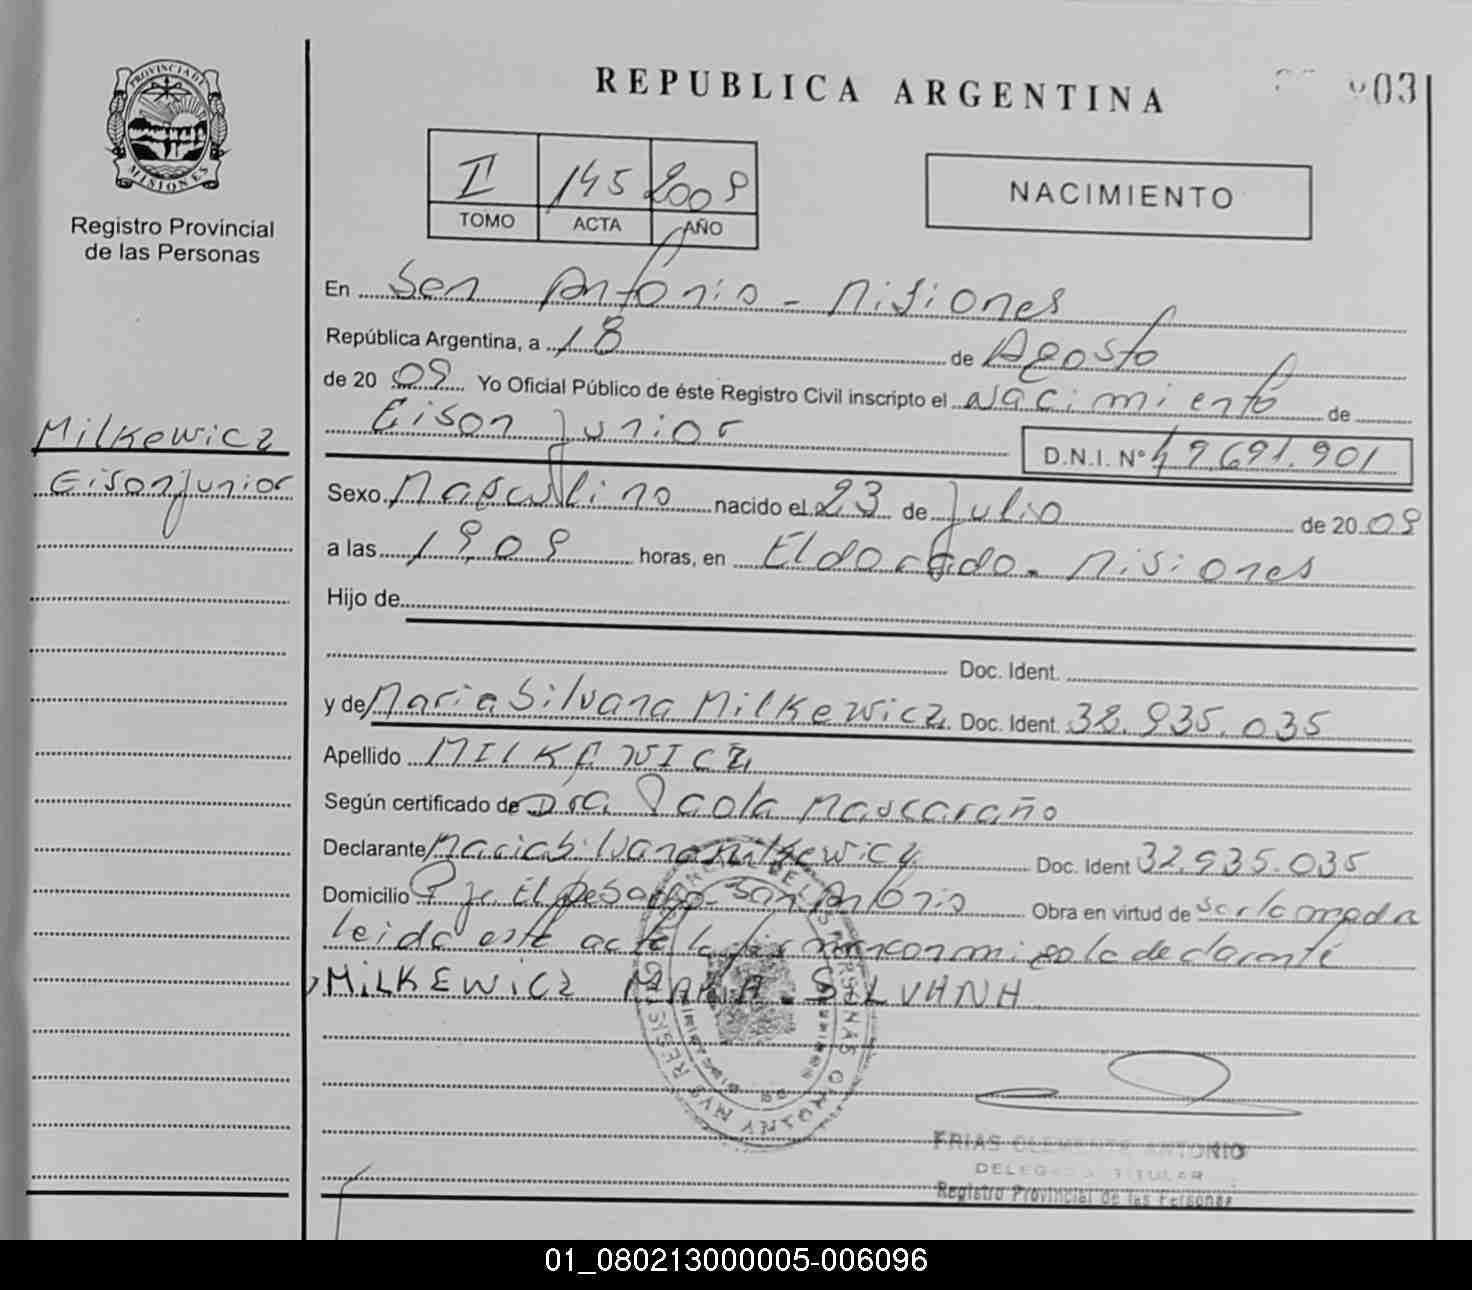 REPUBLICA ARGENTINA
03
PROVINCIA DE
MISIONES
Registro Provincial
de las Personas
II 145 2009
TOMO ACTA AÑO
NACIMIENTO
En San Antonio - Misiones
República Argentina, a 18 de Agosto
de 20 09 Yo Oficial Público de éste Registro Civil inscripto el Nacimiento de
Eison Junior
D.N.I. Nº 49.691.901
Milkewicz
Eison Junior
Sexo Masculino nacido el 23 de Julio de 20 09
a las 19,09 horas, en Eldorado - Misiones
Hijo de
Doc. Ident.
y de Maria Silvana Milkewicz Doc. Ident. 32.935.035
Apellido MILKEWICZ
Según certificado de Dra Paola Mascaraño
Declarante Maria Silvana Milkewicz Doc. Ident 32.935.035
Domicilio Pje. El San Antonio Obra en virtud de
leida este acta la firman conmigo la declarante
MILKEWICZ MARIA SILVANA
FRIAS CLEMENTE ANTONIO
DELEGADO TITULAR
Registro Provincial de las Personas
01_080213000005-006096